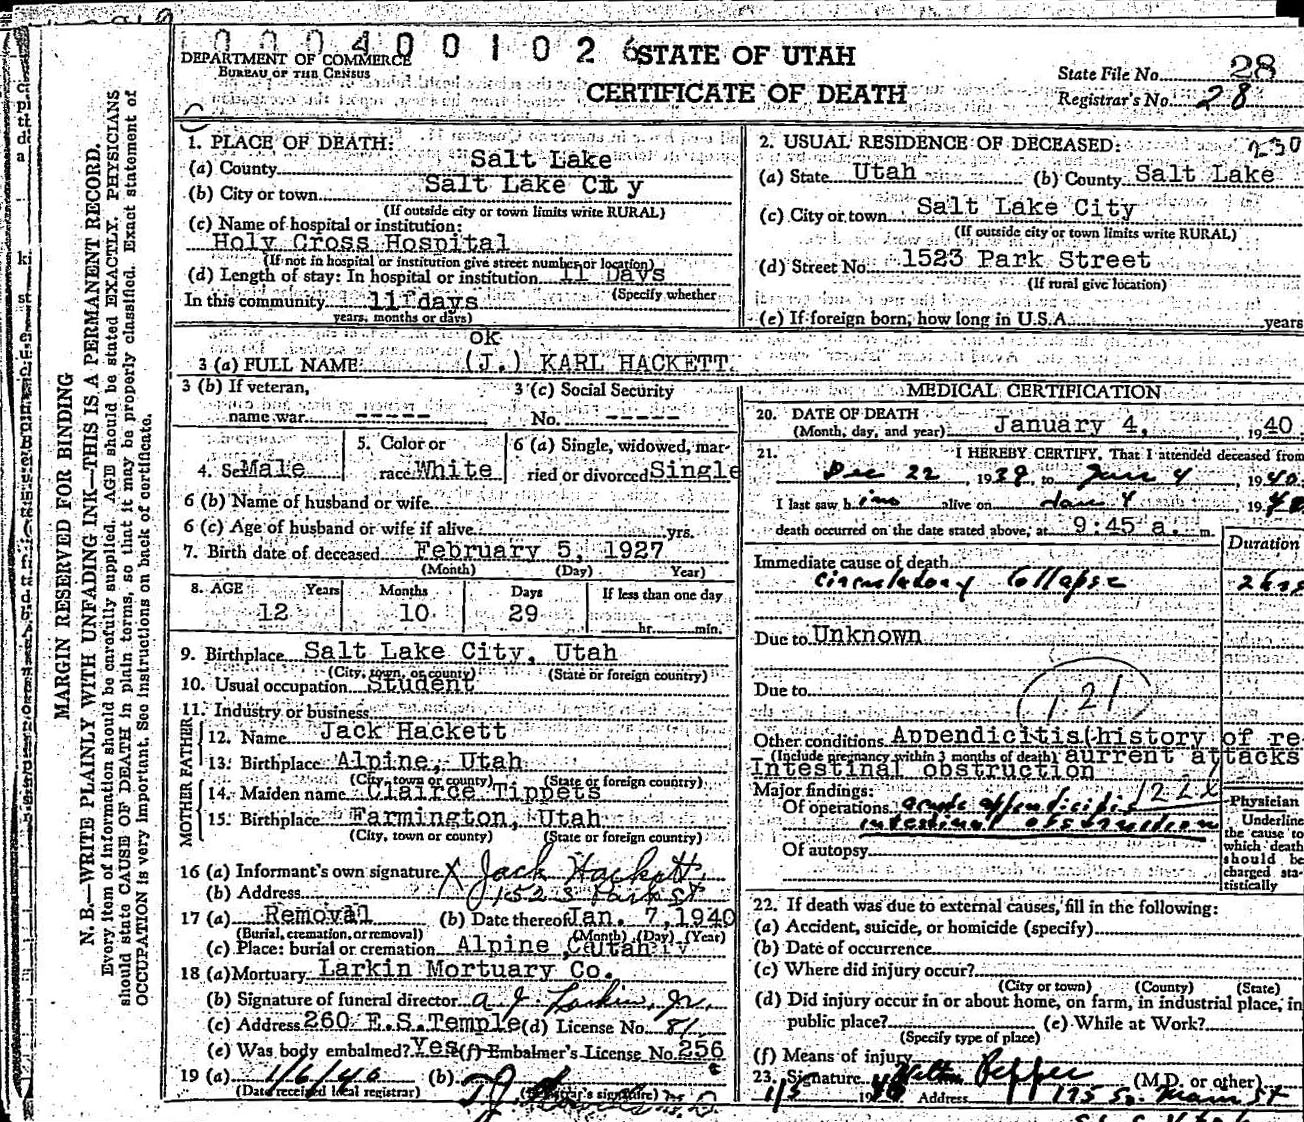 0 0 0 4 0 0 1 0 2 6
DEPARTMENT OF COMMERCE
BUREAU OF THE CENSUS
STATE OF UTAH
CERTIFICATE OF DEATH
State File No. 28
Registrar's No. 28
1. PLACE OF DEATH:
(a) County Salt Lake
(b) City or town Salt Lake City
(If outside city or town limits write RURAL)
(c) Name of hospital or institution:
Holy Cross Hospital
(If not in hospital or institution give street number or location)
(d) Length of stay: In hospital or institution 11 Days
(Specify whether
In this community 11 days
years, months or days)
2. USUAL RESIDENCE OF DECEASED: 230
(a) State Utah (b) County Salt Lake
(c) City or town Salt Lake City
(If outside city or town limits write RURAL)
(d) Street No. 1523 Park Street
(If rural give location)
(e) If foreign born, how long in U.S.A. years
OK
3 (a) FULL NAME: (J.) KARL HACKETT.
3 (b) If veteran,
name war -----
3 (c) Social Security
No. -----
4. Sex Male
5. Color or
race White
6 (a) Single, widowed, mar-
ried or divorced Single
6 (b) Name of husband or wife
6 (c) Age of husband or wife if alive yrs.
7. Birth date of deceased February 5, 1927
(Month) (Day) Year)
8. AGE Years Months Days If less than one day
12 10 29 hr. min.
9. Birthplace Salt Lake City, Utah
(City, town, or county) (State or foreign country)
10. Usual occupation Student
11. Industry or business
FATHER
12. Name Jack Hackett
13. Birthplace Alpine, Utah
(City, town or county) (State or foreign country)
MOTHER
14. Maiden name Clairce Tippets
15. Birthplace Farmington, Utah
(City, town or county) (State or foreign country)
16 (a) Informant's own signature X Jack Hackett
(b) Address 1523 Park St
17 (a) Removal (b) Date thereof Jan. 7, 1940
(Burial, cremation, or removal) (Month) (Day) (Year)
(c) Place: burial or cremation Alpine
18 (a) Mortuary Larkin Mortuary Co.
(b) Signature of funeral director A J. Larkin, Jr.
(c) Address 260 E.S.Temple (d) License No. 81
(e) Was body embalmed? Yes (f) Embalmer's License No. 256
19 (a) 1/6/40 (b)
(Date received local registrar) (Registrar's signature)
MEDICAL CERTIFICATION
20. DATE OF DEATH
(Month, day, and year) January 4, 1940
21. I HEREBY CERTIFY, That I attended deceased from
Dec 22, 1939, to Jan 4, 1940;
I last saw him alive on Jan 4 1940
death occurred on the date stated above, at 9:45 a. m.
Duration
Immediate cause of death
circulatory collapse 2 hrs
Due to Unknown
Due to
121
Other conditions Appendicitis(history of re-
(Include pregnancy within 3 months of death) aurrent attacks
Intestinal obstruction
Major findings: 122
Of operations acute appendicitis
intestinal obstruction
Of autopsy
Physician
Underline
the cause to
which death
should be
charged sta-
tistically
22. If death was due to external causes, fill in the following:
(a) Accident, suicide, or homicide (specify)
(b) Date of occurrence
(c) Where did injury occur?
(City or town) (County) (State)
(d) Did injury occur in or about home, on farm, in industrial place, in
public place? (e) While at Work?
(Specify type of place)
(f) Means of injury
23. Signature Pepper (M.D. or other)
1/5 1940 Address 175 So. Main St
MARGIN RESERVED FOR BINDING
N. B.—WRITE PLAINLY WITH UNFADING INK—THIS IS A PERMANENT RECORD.
Every item of information should be carefully supplied. AGE should be stated EXACTLY. PHYSICIANS
should state CAUSE OF DEATH in plain terms, so that it may be properly classified. Exact statement of
OCCUPATION is very important. See instructions on back of certificate.